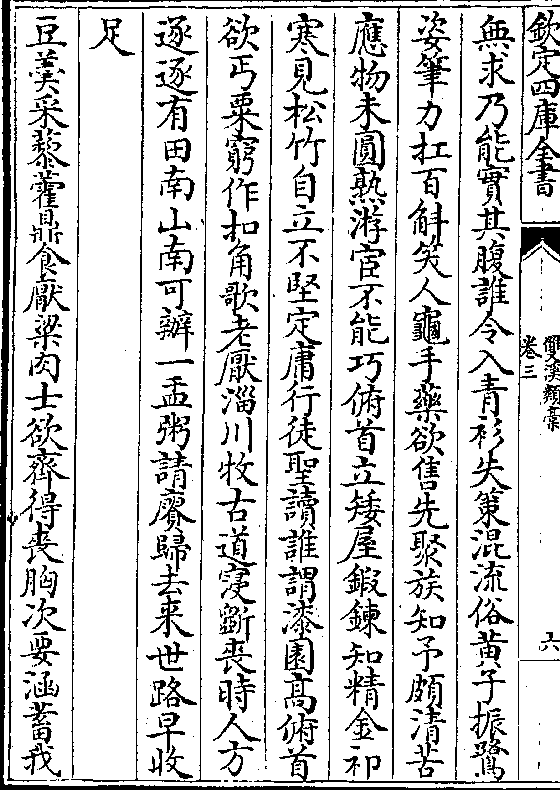 欽定四庫全書
雙溪類槀
卷三
六
無求乃能實其腹誰令入青衫失策混流俗黄子振鷺
姿筆力扛百斛笑人龜手藥欲售先聚族知予頗清苦
應物未圓熟游宦不能巧俯首立矮屋鍛鍊知精金祁
寒見松竹自立不堅定庸行徒聖讀誰謂漆園髙俯首
欲丐粟窮作扣角歌老厭淄川牧古道寖斵喪時人方
逐逐有田南山南可辦一盂粥請賡歸去来世路早收
足
豆羮采藜藿鼎食厭粱肉士欲齊得丧胸次要涵蓄我